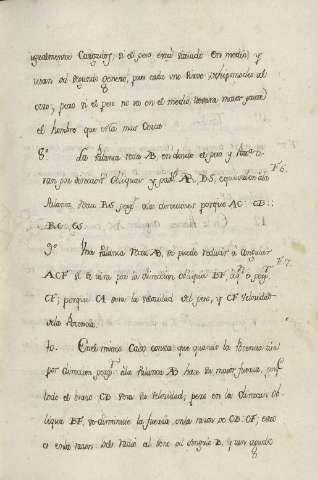 igualmente Cargados; si el peso está situado en medio; y
usan del segundo genero, pues cada uno sirve de hipomoclio al
otro; pero si el peso no va en el medio, llevara mayor parte
el hombre que esta mas Cerca
8º La Palanca recta AB, en donde el peso y Potencia
tiran por direccion obliquas y AR, BS, equivalen ala
F. 6.
Palanca recta RS alas direcciones porque AC: CB::
RC, CS.
9º Una Palanca recta AB, se puede reducir â Angular
F. 7.
ACF si se tira por la direccion obliqua BF,
CF; porque CA sera la velocidad del peso, y CF velocidad
dela Potencia.
10. En el mismo Caso consta que quando la Potencia tira
por direccion ala Palanca AB hace la mayor fuerza,
todo el brazo CB sera su velocidad; pero en la direccion ob-
liqua BF, se disminuie la fuerza en la razon de CB: CF, esto
es en la razon del Radio al seno del angulo B, y aun quando